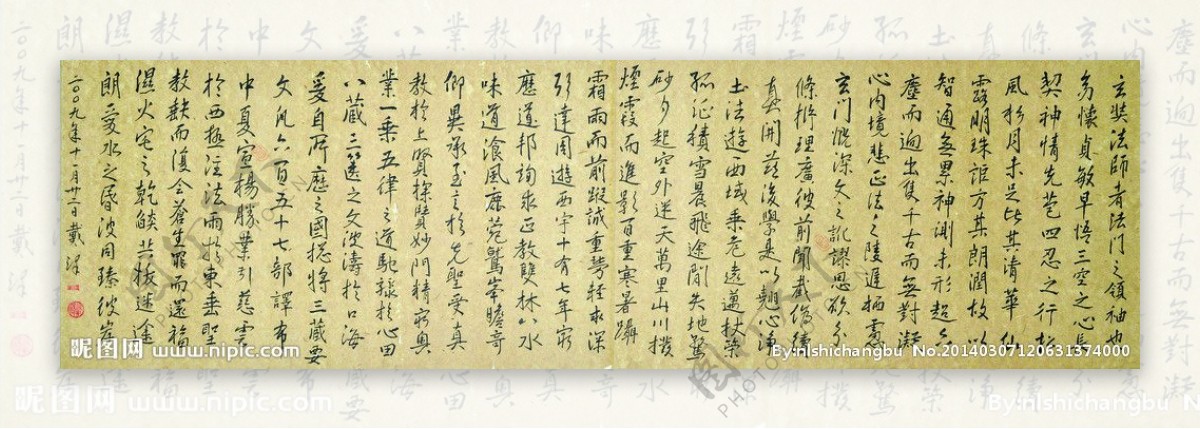 玄奘法師者法門之領袖也
幼懷貞敏早悟三空之心長
契神情先苞四忍之行松
風水月未足比其清華仙
露明珠詎方其朗潤故以
智通無累神測未形超六
塵而迥出隻千古而無對凝
心內境悲正法之陵遲栖慮
玄門慨深文之訛謬思欲分
條析理廣彼前聞截偽續
真開茲後學是以翹心淨
土法遊西域乘危遠邁杖策
孤征積雪晨飛途閒失地驚
砂夕起空外迷天萬里山川撥
煙霞而進影百重寒暑躡
霜雨而前蹤誠重勞輕求深
達周遊西宇十有七年窮
歷道邦詢求正教雙林八水
味道湌風鹿菀鷲峯瞻奇
仰異承至言於先聖受真
教於上賢探賾妙門精窮奧
業一乘五律之道馳驟於心田
八藏三篋之文波濤於口海
爰自所歷之國總將三藏要
文凡六百五十七部譯布
中夏宣揚勝業引慈雲
於西極注法雨於東垂聖
教缺而復全蒼生罪而還福
濕火宅之乾焰共拔迷途
朗愛水之昏波同臻彼岸
二〇〇九年十一月廿二日戴
昵图网 www.nipic.com
By:nlshichangbu No.20140307120631374000
昵图网 www.nipic.com
By:nlshichangbu